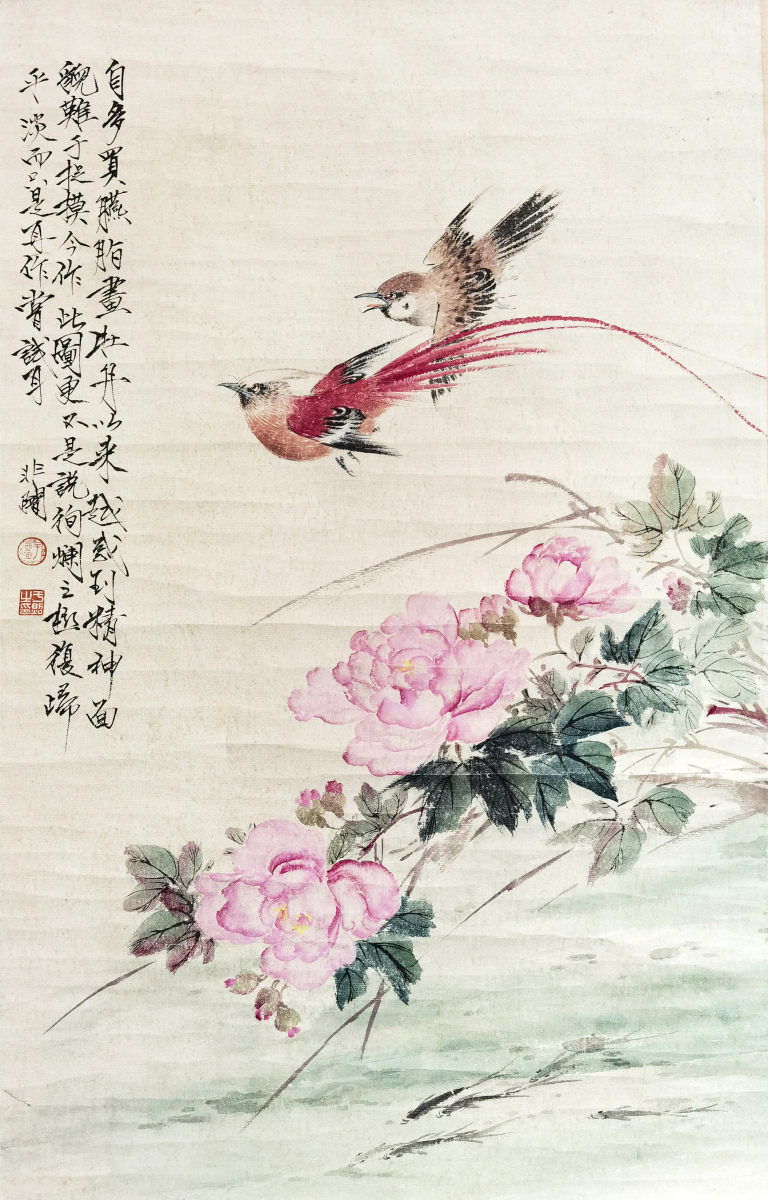 自多買臙脂畫牡丹以来越感到精神面
貌難于捉摸今作此圖更不是說徇爛之極復歸
平淡而只是再作嘗試耳
非闇